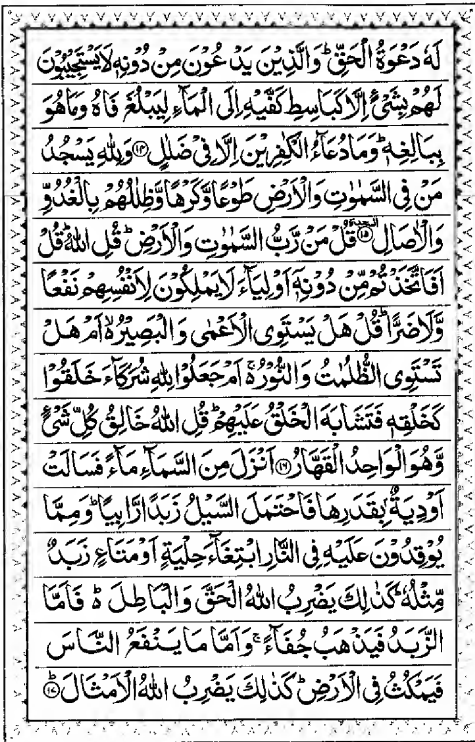 لَهٗ دَعْوَةُ الْحَقِّ ؕ وَالَّذِيْنَ يَدْعُوْنَ مِنْ دُوْنِهٖ لَا يَسْتَجِيْبُوْنَ
لَهُمْ بِشَيْءٍ اِلَّا كَبَاسِطِ كَفَّيْهِ اِلَى الْمَآءِ لِيَبْلُغَ فَاهُ وَمَا هُوَ
بِبَالِغِهٖ ؕ وَمَا دُعَآءُ الْكٰفِرِيْنَ اِلَّا فِيْ ضَلٰلٍ ۝۱۴ وَلِلّٰهِ يَسْجُدُ
مَنْ فِي السَّمٰوٰتِ وَالْاَرْضِ طَوْعًا وَّكَرْهًا وَّظِلٰلُهُمْ بِالْغُدُوِّ
وَالْاٰصَالِ ۝۱۵ السجدة قُلْ مَنْ رَّبُّ السَّمٰوٰتِ وَالْاَرْضِ ؕ قُلِ اللّٰهُ ؕ قُلْ
اَفَاتَّخَذْتُمْ مِّنْ دُوْنِهٖۤ اَوْلِيَآءَ لَا يَمْلِكُوْنَ لِاَنْفُسِهِمْ نَفْعًا
وَّلَا ضَرًّا ؕ قُلْ هَلْ يَسْتَوِي الْاَعْمٰى وَالْبَصِيْرُ ۙ اَمْ هَلْ
تَسْتَوِي الظُّلُمٰتُ وَالنُّوْرُ ۚ اَمْ جَعَلُوْا لِلّٰهِ شُرَكَآءَ خَلَقُوْا
كَخَلْقِهٖ فَتَشَابَهَ الْخَلْقُ عَلَيْهِمْ ؕ قُلِ اللّٰهُ خَالِقُ كُلِّ شَيْءٍ
وَّهُوَ الْوَاحِدُ الْقَهَّارُ ۝۱۶ اَنْزَلَ مِنَ السَّمَآءِ مَآءً فَسَالَتْ
اَوْدِيَةٌۢ بِقَدَرِهَا فَاحْتَمَلَ السَّيْلُ زَبَدًا رَّابِيًا ؕ وَمِمَّا
يُوْقِدُوْنَ عَلَيْهِ فِي النَّارِ ابْتِغَآءَ حِلْيَةٍ اَوْ مَتَاعٍ زَبَدٌ
مِّثْلُهٗ ؕ كَذٰلِكَ يَضْرِبُ اللّٰهُ الْحَقَّ وَالْبَاطِلَ ؕ۬ فَاَمَّا
الزَّبَدُ فَيَذْهَبُ جُفَآءً ۚ وَاَمَّا مَا يَنْفَعُ النَّاسَ
فَيَمْكُثُ فِي الْاَرْضِ ؕ كَذٰلِكَ يَضْرِبُ اللّٰهُ الْاَمْثَالَ ؕ ۝۱۷